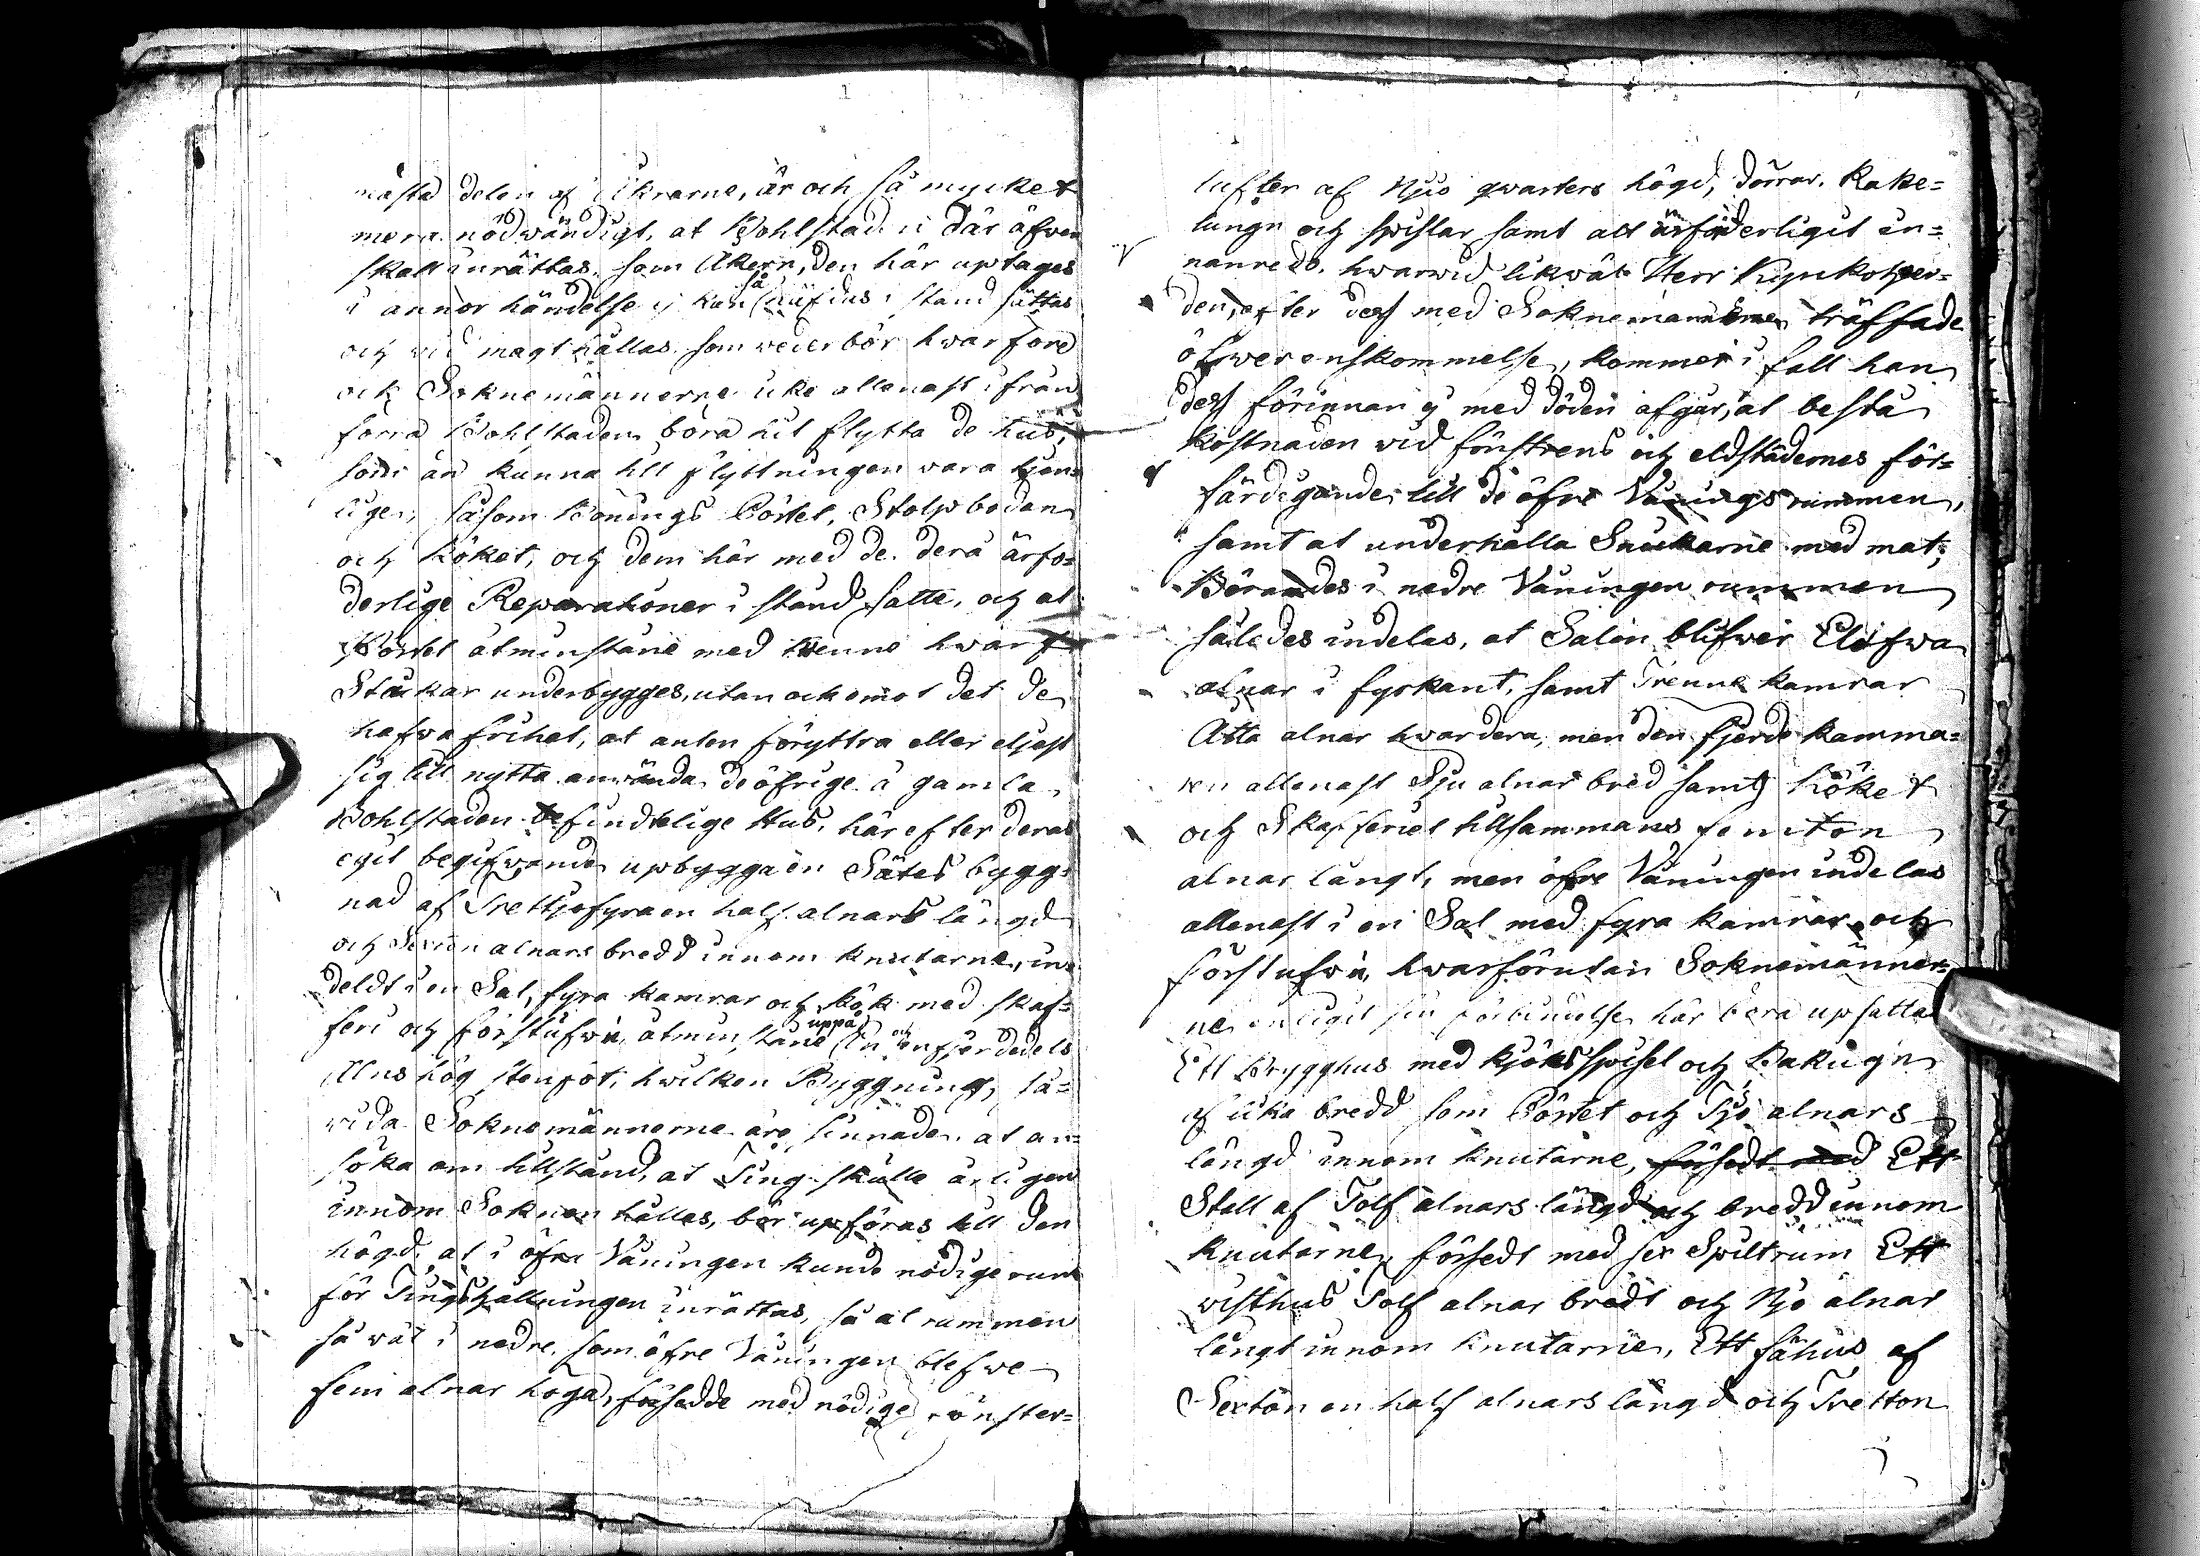 måsta delen af Åkrarne, är och så mycket
mera nödwändigt, at Bohlstaden där äfwen
skall inrättas, som Åkern, den här uptages
i annor händelse ej kan så häfdas i stand sättas
och wid magt hållas som wederbör hwarföre
ock Soknemännerne icke allenast ifrån
förra Bohlstaden böra hit flytta de hus,
som än kunna till flyttningen wara tjen-
lige, såsom Bonings Pörtet, Stolpboden
och Köket, och dem här med de dera ärfo-
derlige Reparationer i stand satte, och at
Pörtet åtminstone med trenne hwarf
Stäckar underbygges, utan ock emot det de
hafwa frihet, at anten föryttra eller eljest
sig till nytta använda de öfrige å gamla
Bohlstaden befindtelige Hus, här efter deras
egit begifwande upbygga en Sätes bygg-
nad af Trettjofyra en half alnars längd
och Sexton alnars bredd innom knutarne, in-
deldt i en Sal, fyra kamrar och kök med skaf-
feri och förstufwu, åtminstone uppå En och en fjerdedels
Alns hög stenfot, hwilken Byggning, så-
vida Soknemännerne äro sinnade at an-
söka om tillstånd, at Ting skulle årligen
innom Soknen hållas, bör upföras till den
högd, at i öfre Våningen kunde nödige rum
för Tingshållningen inrättas, så at rummen
så wäl i nedre, som öfre Våningen blefwe
fem alnar höga, försedde med nödige fönster-
lufter af Njo qwarters högd, dörrar, Kake-
lungn och spislar samt alt ärforderligit in-
nanrede, hwarwid likwäl Herr Kyrkoher-
den, efter dess med Soknemännerne träffade
öfwerenskommelse, kommer i fall han
dess förinnan ej med döden afgår, at bestå
kostnaden wid fönstrens och eldstädernes för-
färdigande till de öfre Vånings rummen,
samt at underhålla Snickarne med mat;
Börandes i nedre Våningen rummen
således indelas, at Salen blifwer Elofwa
alnar i fyrkant, samt Trenne kamrar
Åtta alnar hwardera, men den fjerde kamma-
ren allenast Sju alnar bred samt Köket
och Skafferiet tillsammans femton
alnar långt, men öfre Våningen indelas
allenast i en Sal med fyra kamrar och
förstufwu, hwarförutan Soknemänner-
ne enligit sin förbindelse här böra upsätta
Ett Brygghus med kjöksspisel och Bakugn
af lika bredd som Pörtet och Tjo alnars
längd innom knutarne, försedt med Ett
Stall af Tolf alnars längd och bredd innom
knutarne, försedt med sex Spiltrum Ett
wisthus Tolf alnar bredt och Njo alnar
långt innom knutarne, Ett fähus af
Sexton en half alnars längd och Tretton